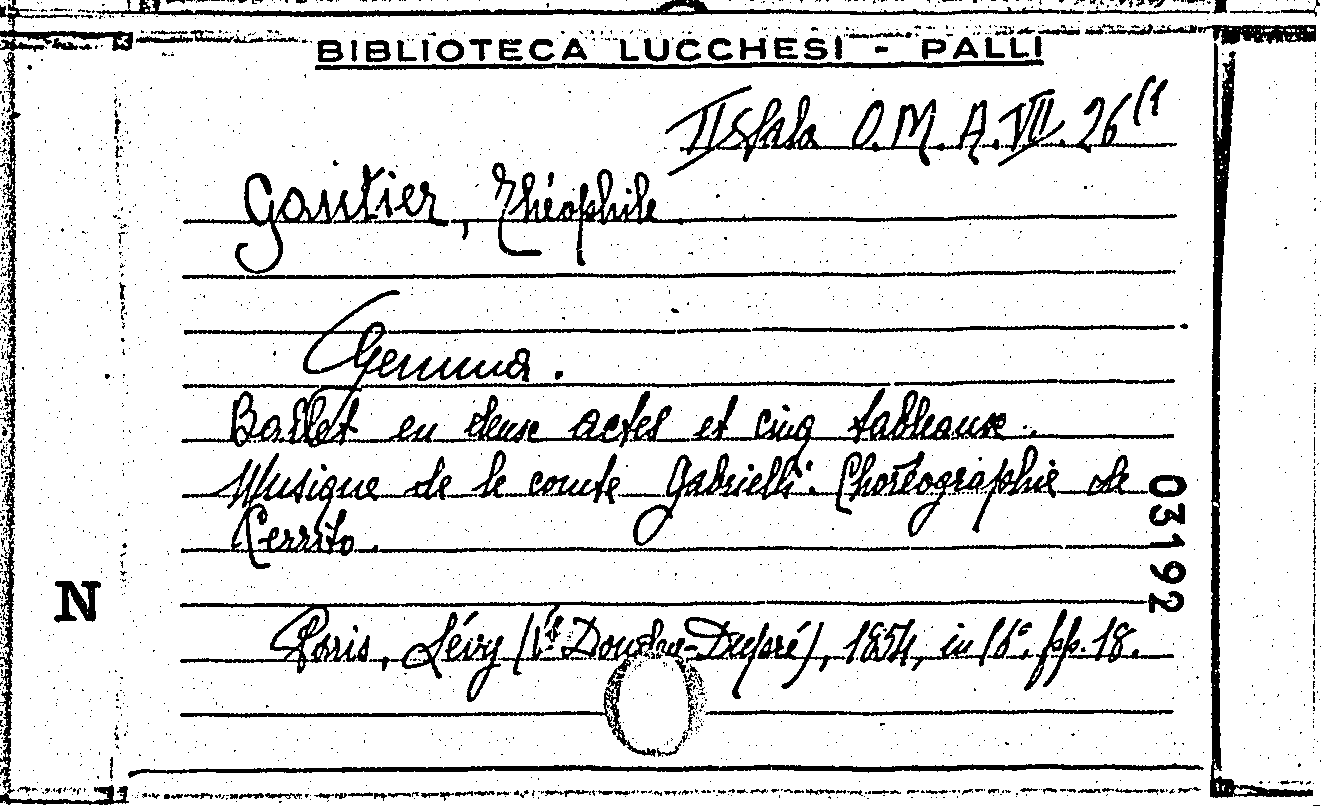 BIBLIOTECA LUCCHESI - PALLI
II Sala O.M. A.VII. 26¹¹
Gautier, Théophile
Gemma.
Ballet en deux actes et cinq tableaux.
Musique de le comte Gabrielli. Choréographie de
Cerrito.
03192
N
Paris, Lévy (V.e Dondey-Dupré), 1854, in 16°, pp. 18.